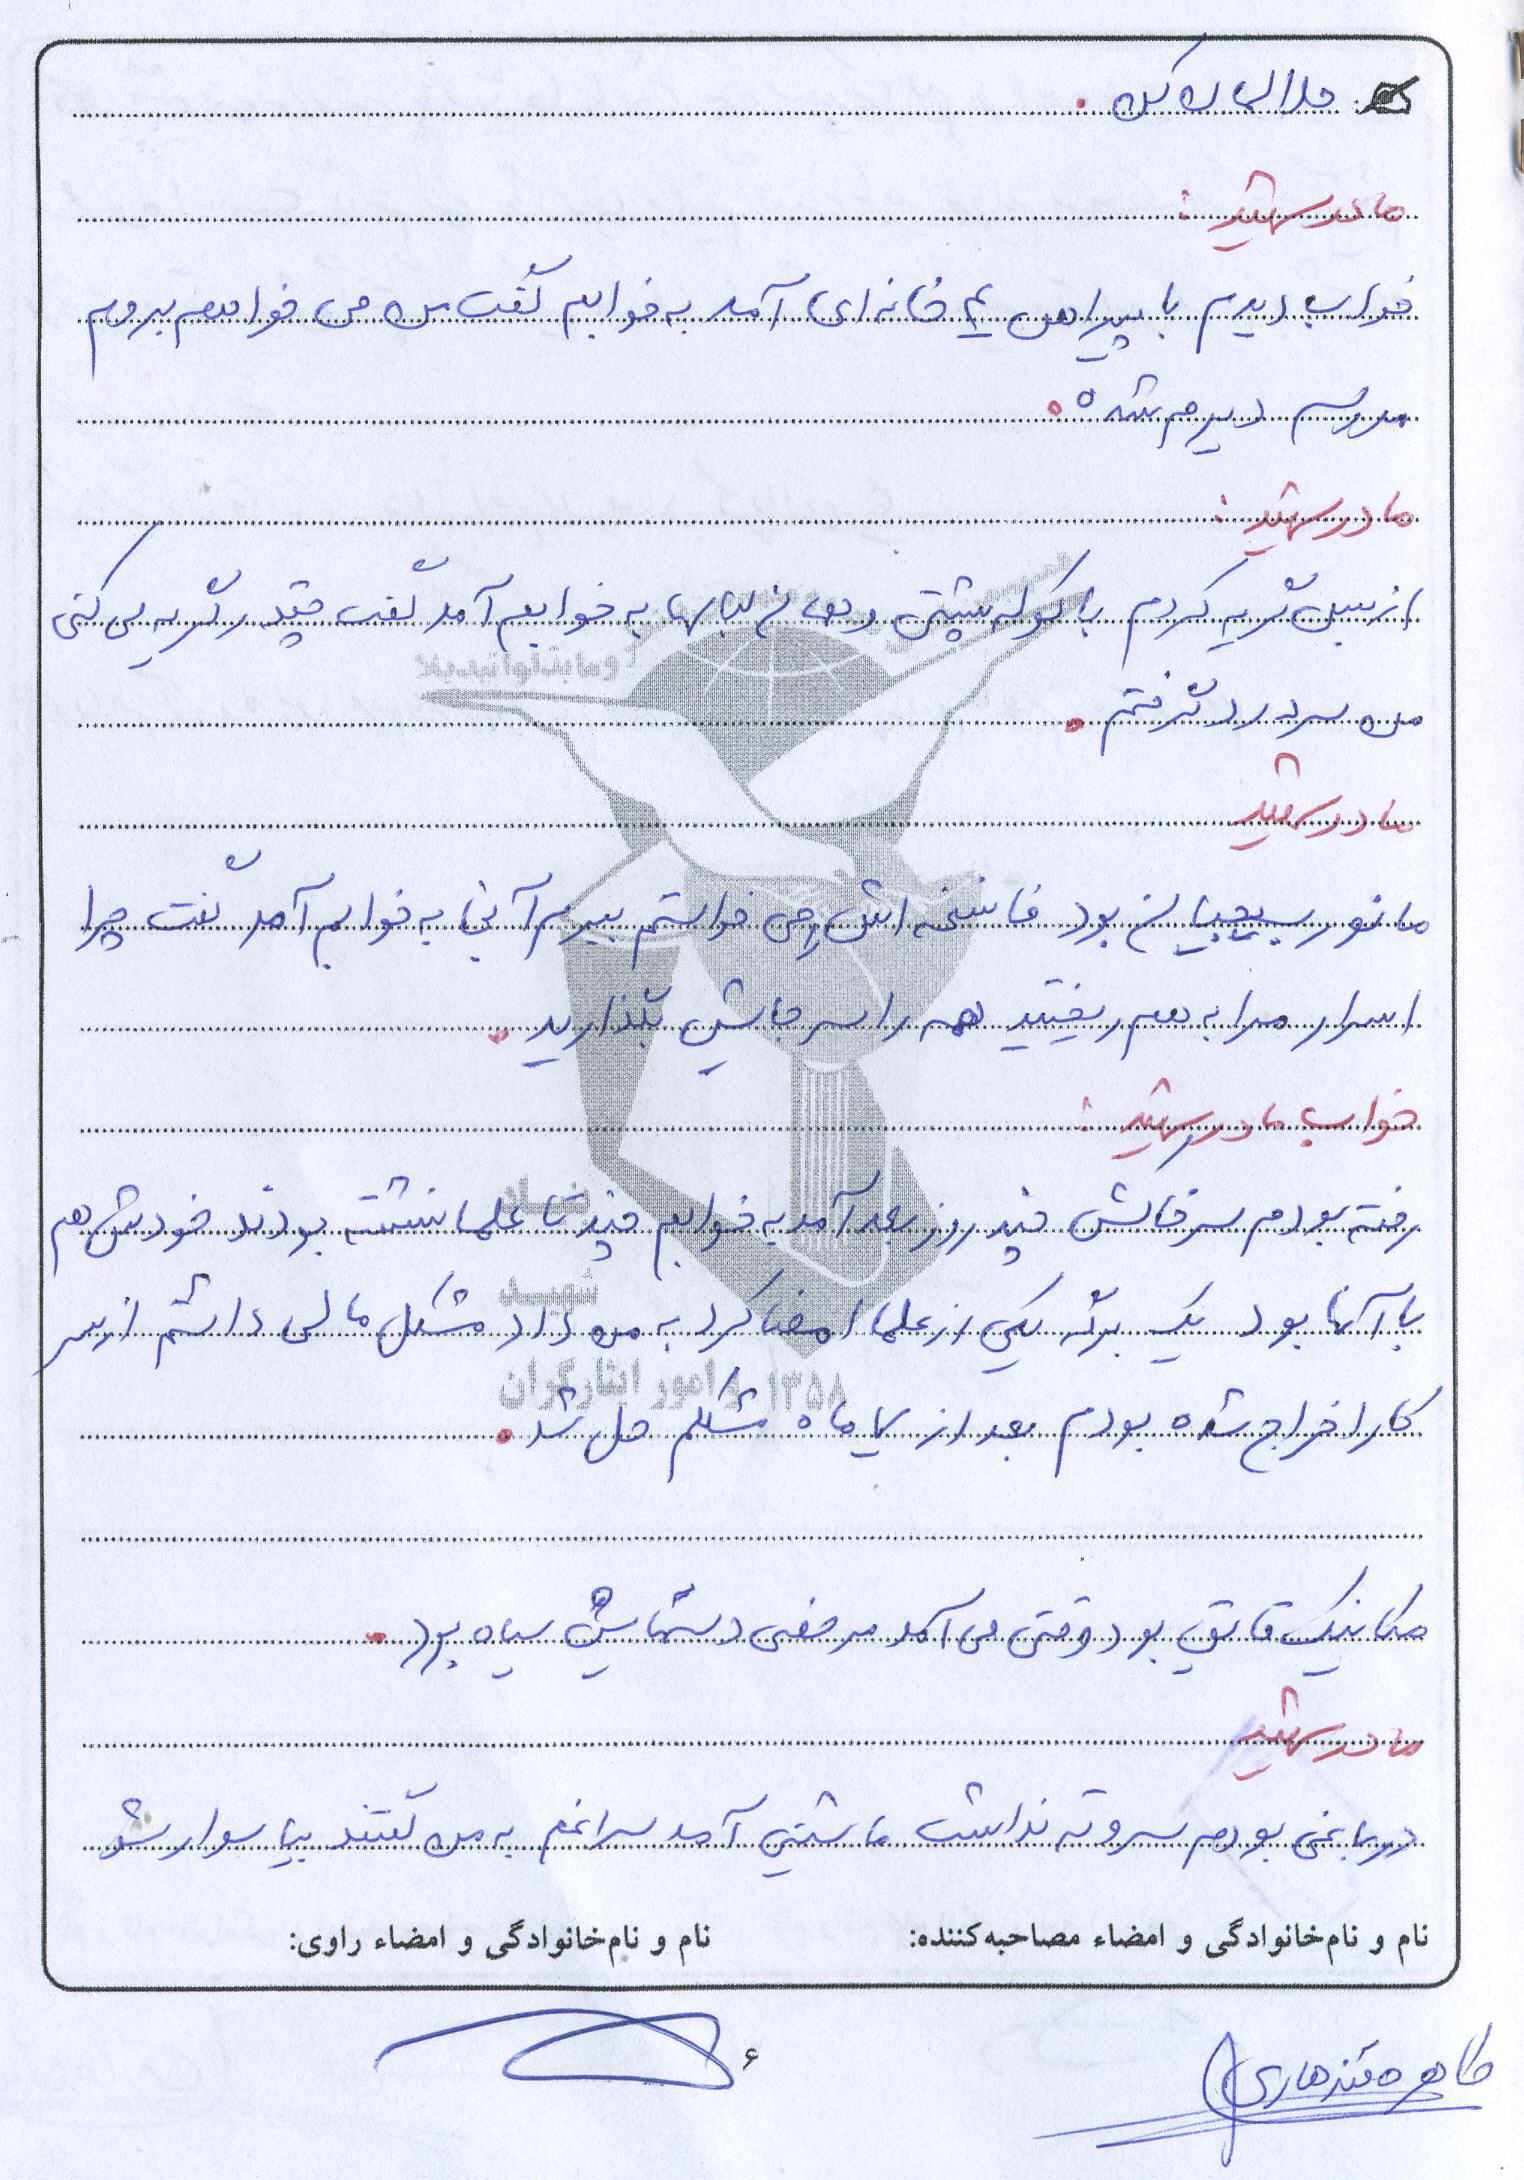 حلالمان کن .
مادر شهید :
خواب دیدم با پیراهن خانه‌ای آمد به خوابم گفت من می خواهم بروم
مدرسه دیرم شده .
مادر شهید :
از بس گریه کردم با کوله پشتی و همان لباسها به خوابم آمد گفت چقدر گریه می کنی
من سردرد گرفتم .
مادر شهید
مانور بسیجیان بود می خواستم ببرم آنجا به خوابم آمد گفت چرا
اسرار مرا به هم ریختید همه را سر جایش بگذارید .
خواب مادر شهید :
رفته بودم سر خاکش چند روز بعد آمد به خوابم چند تا علما نشسته بودند خودش هم
با آنها بود یک برگه یکی از علما امضا کرد به من داد مشکل مالی داشتم از سر
کار اخراج شده بودم بعد از ماه مشکلم حل شد .
مکانیک قایق بود وقتی می آمد مرخصی دستهایش سیاه بود .
مادر شهید
در باغی بودم سر و ته نداشت ماشینی آمد سراغم به من گفتند بیا سوار شو
نام و نام‌خانوادگی و امضاء مصاحبه‌کننده:
نام و نام‌خانوادگی و امضاء راوی:
۶
طاهره قندهاری
شهید
۱۳۵۸
و امور ایثارگران